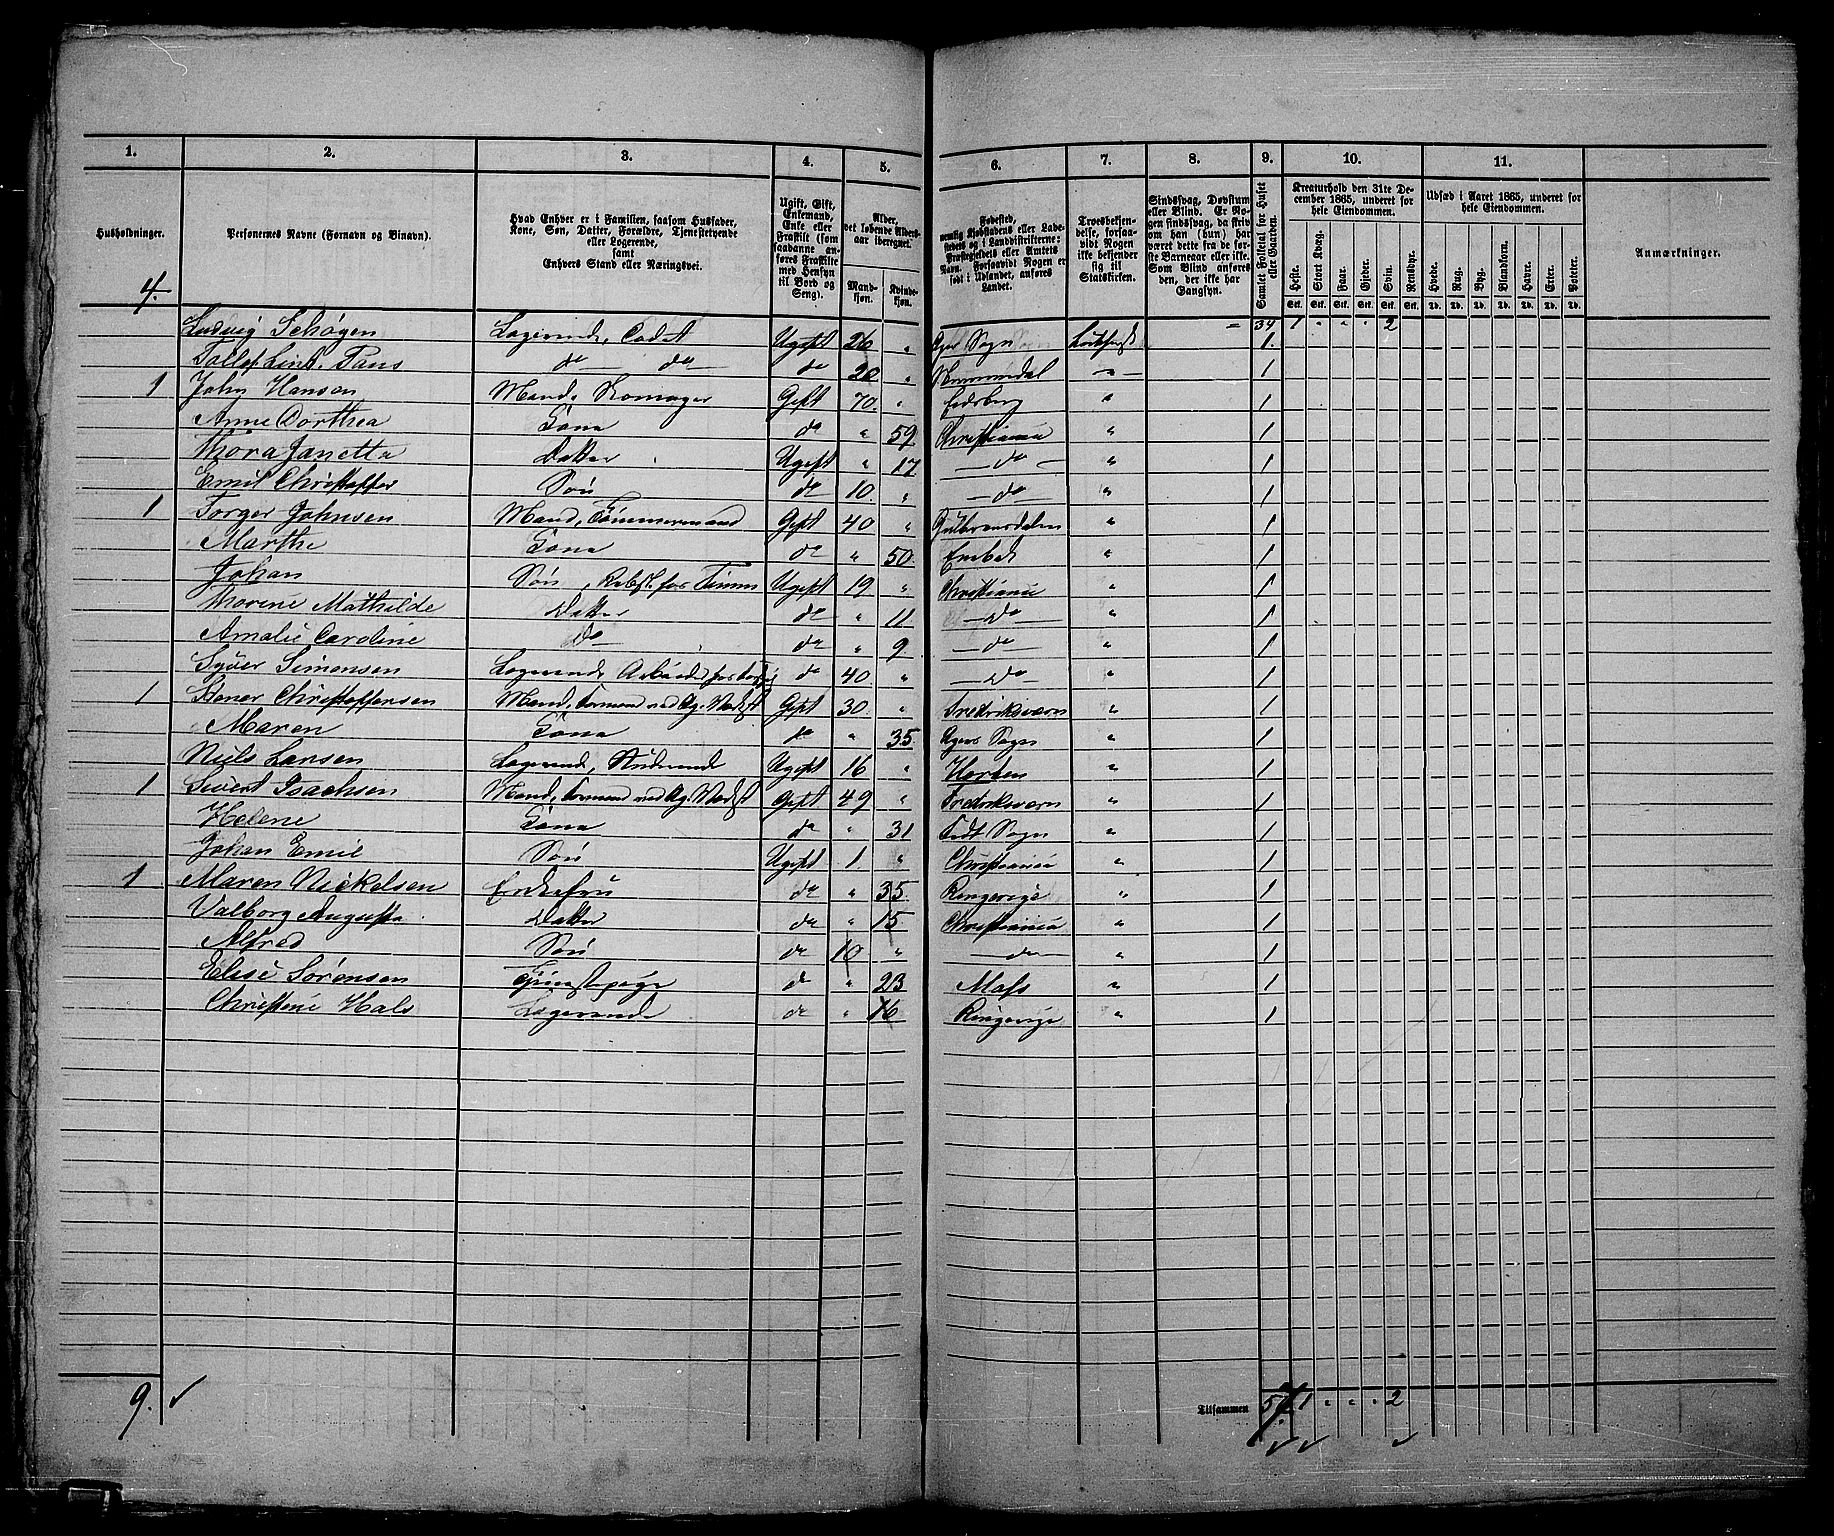 1. 2. 3. 4. 5. 6. 7. 8. 9. 10. 11.
Husholdninger.
Personernes Navne (Fornavn og Binavn).
Hvad Enhver er i Familien, saasom Husfader, Kone, Søn, Datter, Forældre, Tjenestetyende eller Logerende, samt Enhvers Stand eller Næringsvei.
Ugift, Gift, Enkemand, Enke eller Fraskilt (som saadanne anføres Fraskilte med Hensyn til Bord og Seng).
Alder, det løbende Alders-aar iberegnet.
Mand-kjøn. Kvinde-kjøn.
Fødested, nemlig Kjøbstadens eller Ladestedets og i Landdistrikterne: Præstegjeldets eller Amtets Navn. Forsaavidt Nogen er født i Udlandet, anføres Landet.
Troesbekjendelse, forsaavidt Nogen ikke bekjender sig til Statskirken.
Sindssvag, Døvstum eller Blind. Er Nogen sindssvag, da skriv om han (hun) har været dette fra de første Barneaar eller ikke. Som Blind anføres den, der ikke har Gangsyn.
Samlet Folketal for Huset eller Gaarden.
Kreaturhold den 31te December 1865, underet for hele Eiendommen.
Heste. Stort Kvæg. Faar. Gjeder. Svin. Rensdyr.
Stk. Stk. Stk. Stk. Stk. Stk.
Udsæd i Aaret 1865, underet for hele Eiendommen.
Hvede. Rug. Byg. Blandkorn. Havre. Erter. Poteter.
Td. Td. Td. Td. Td. Td. Td.
Anmærkninger.
4. 34 1 " " " 2
Ludvig Schøgen Logerende, Cadet Ugift 26 " Agers Sogn Luthersk 1.
Tollef Lind. Paus do do do 20 " 1
1 John Hansen Mand, Gift 70. " Eidsberg " 1
Anne Dorthea Kona do " 59 Christiania " 1
Thora Janette Datter Ugift " 17 do " 1
Emil Christoffer Søn do 10. " do " 1
1 Torger Johnsen Mand, Tømmermand Gift 40 " Gulbransdalen " 1
Marthe Kona do " 50. Enebak " 1
Johan Søn, for Ugift 19 " Christiania " 1
Thorine Mathilde Datter do " 11 do " 1
Amalie Caroline do do " 9 do " 1
Syver Simensen Logerende do 40 " do " 1
1 Christoffersen Mand, Formand ved Ag. Værkst Gift 30. " Fredriksværn " 1
Maren Kona do " 35. Agers Sogn " 1
Niels Larsen Logerende, Studerende Ugift 16 " Horten " 1
1 Sivert Isachsen Mand, Formand ved Ag. Værkst Gift 49 " Fredriksværn " 1
Helene Kona do " 31 Sogn " 1
Johan Emil Søn Ugift 1. " Christiania " 1
1 Maren Nickelsen Enkefru do " 35. Ringerige " 1
Valborg Augusta Datter do " 15 Christiania " 1
Alfred Søn do 10 " do " 1
Elise Sørensen Tjenestepige do " 23 Moss " 1
Christine Hals Logerende do " 16 Ringerige " 1
9. Tilsammen 57. 1 " " " 2